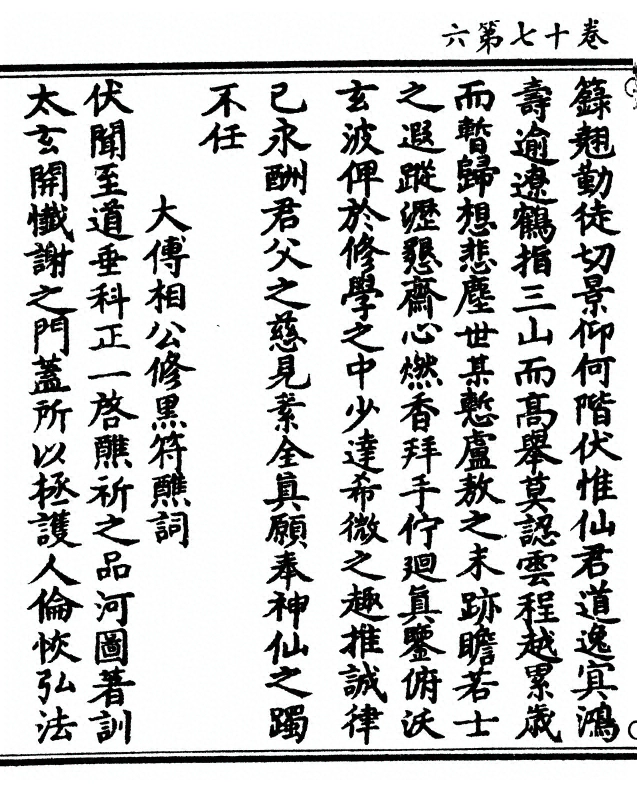 卷十七第六
籙翹勤徒切景仰何階伏惟仙君道逸寘鴻
壽逾遼鶴指三山而高舉莫認雲程越累歲
而暫歸想悲塵世某慙盧敖之末跡瞻若士
之遐蹤瀝懇齋心燃香拜手佇迴真鑒俯沃
玄波俾於修學之中少達希微之趣推誠律
己永酬君父之慈見素全真願奉神仙之躅
不任
大傅相公修黑符醮詞
伏聞至道垂科正一啓醮祈之品河圖著訓
太玄開懺謝之門蓋所以拯護人倫恢弘法